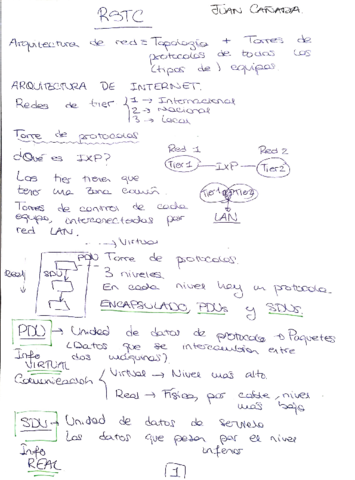 RSTC
JUAN CAÑADA
Arquitectura de red = Topología + Torres de
protocolos de todos los
(tipos de) equipos
ARQUITECTURA DE INTERNET.
Redes de tier
1 → Internacional
2 → Nacional
3 → Local
Torre de protocolos
¿Qué es IXP?
Red 1 Red 2
Tier 1 IXP Tier 2
Los tier tienen que
tener una zona común.
Tier 1 Tier 2
Torres de control de cada
equipo, interconectados por
red LAN.
LAN
→ Virtual
PDU
Torre de protocolos.
Real
SDU
3 niveles.
En cada nivel hay un protocolo.
ENCAPSULADO, PDUs y SDUs.
PDU → Unidad de datos de protocolo o Paquetes
(Datos que se intercambian entre
dos maquinas).
Info
VIRTUAL
Comunicación
Virtual → Nivel mas alto
Real → Física, por cable, nivel
mas bajo
SDU → Unidad de datos de servicio
Los datos que pasan por el nivel
inferior
Info
REAL
1